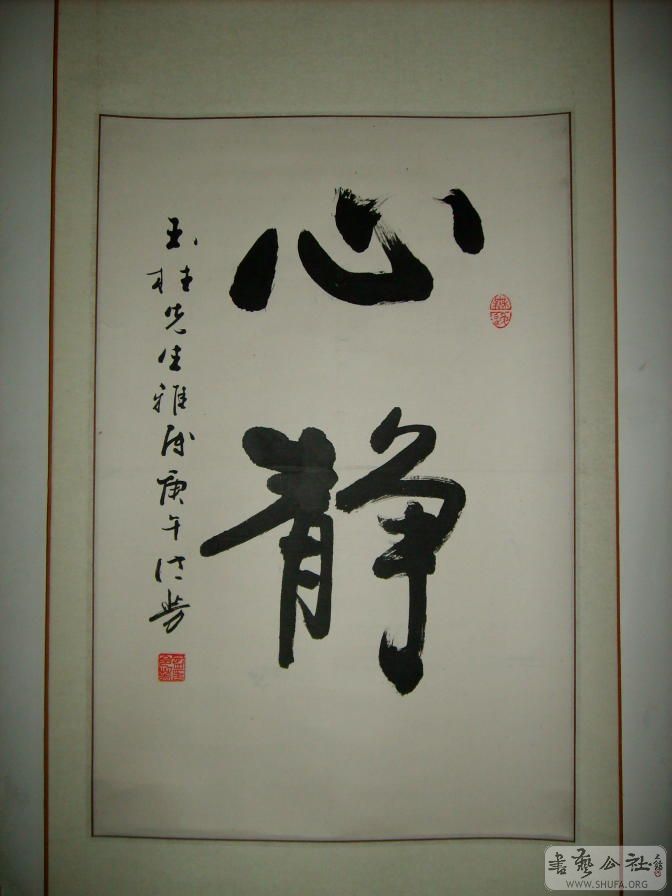 心静
玉柱先生雅属庚午
書藝公社
WWW.SHUFA.ORG